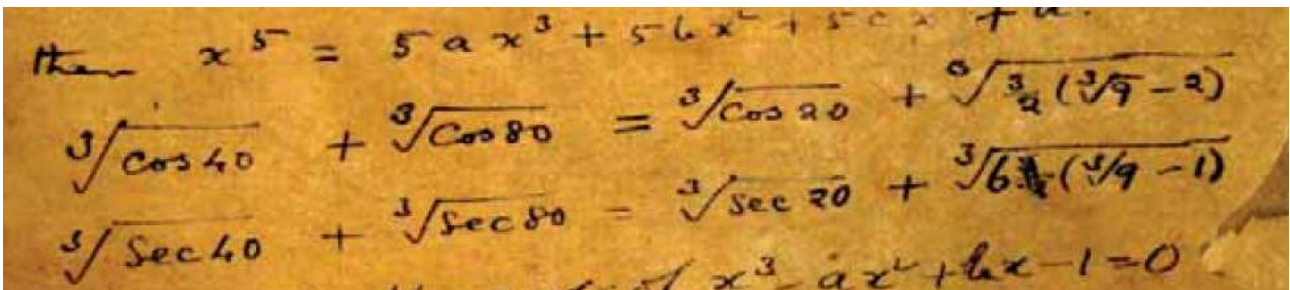 then x⁵ = 5ax³ + 5bx² + 5cx +
∛cos40 + ∛cos80 = ∛cos20 + ∛(3/2(∛9 − 2))
∛sec40 + ∛sec80 = ∛sec20 + ∛(6(∛9 − 1))
of x³ − ax² + bx − 1 = 0